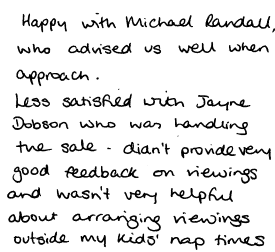 Happy with Michael Randall,
who advised us well when
approach.
Less satisfied with Jayne
Dobson who was handling
the sale - didn't provide very
good feedback on viewings
and wasn't very helpful
about arranging viewings
outside my kids' nap times